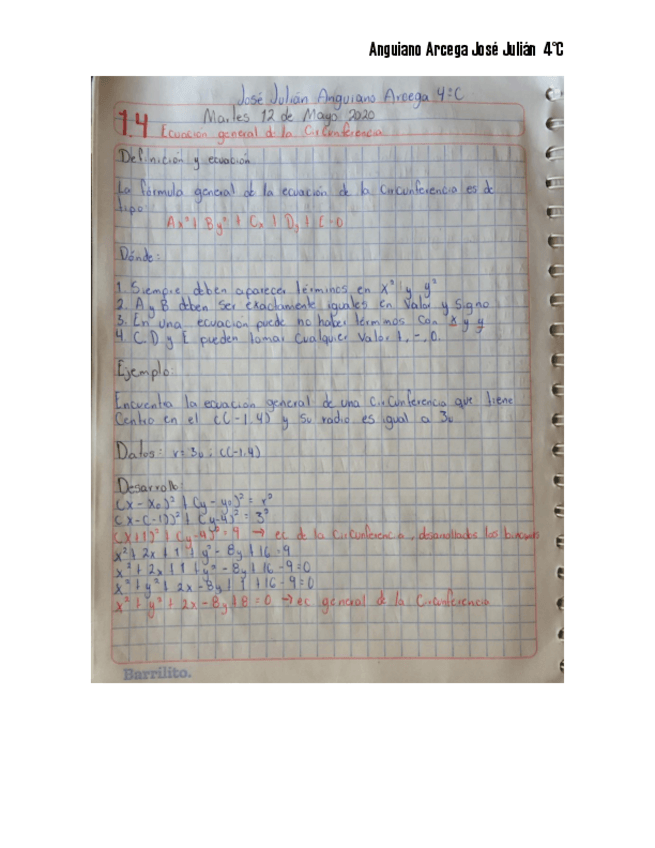 Anguiano Arcega José Julián 4°C
José Julián Anguiano Arcega 4°C
Martes 12 de Mayo 2020
1.4 Ecuación general de la Circunferencia
Definición y ecuación
La fórmula general de la ecuación de la circunferencia es de
tipo:
Ax² + By² + Cx + Dy + E = 0
Dónde:
1. Siempre deben aparecer términos en x² y y²
2. A y B deben ser exactamente iguales en Valor y signo
3. En una ecuación puede no haber términos con x y y
4. C, D y E pueden tomar cualquier valor +, -, 0.
Ejemplo:
Encuentra la ecuación general de una circunferencia que tiene
Centro en el C(-1,4) y su radio es igual a 3u
Datos: r= 3u ; C(-1,4)
Desarrollo:
(x - x₀)² + (y - y₀)² = r²
(x - (-1))² + (y-4)² = 3²
(x+1)² + (y-4)² = 9 → ec de la circunferencia, desarrollados los binomios
x² + 2x + 1 + y² - 8y + 16 = 9
x² + 2x + 1 + y² - 8y + 16 - 9 = 0
x² + y² + 2x - 8y + 1 + 16 - 9 = 0
x² + y² + 2x - 8y + 8 = 0 → ec general de la Circunferencia
Barrilito.